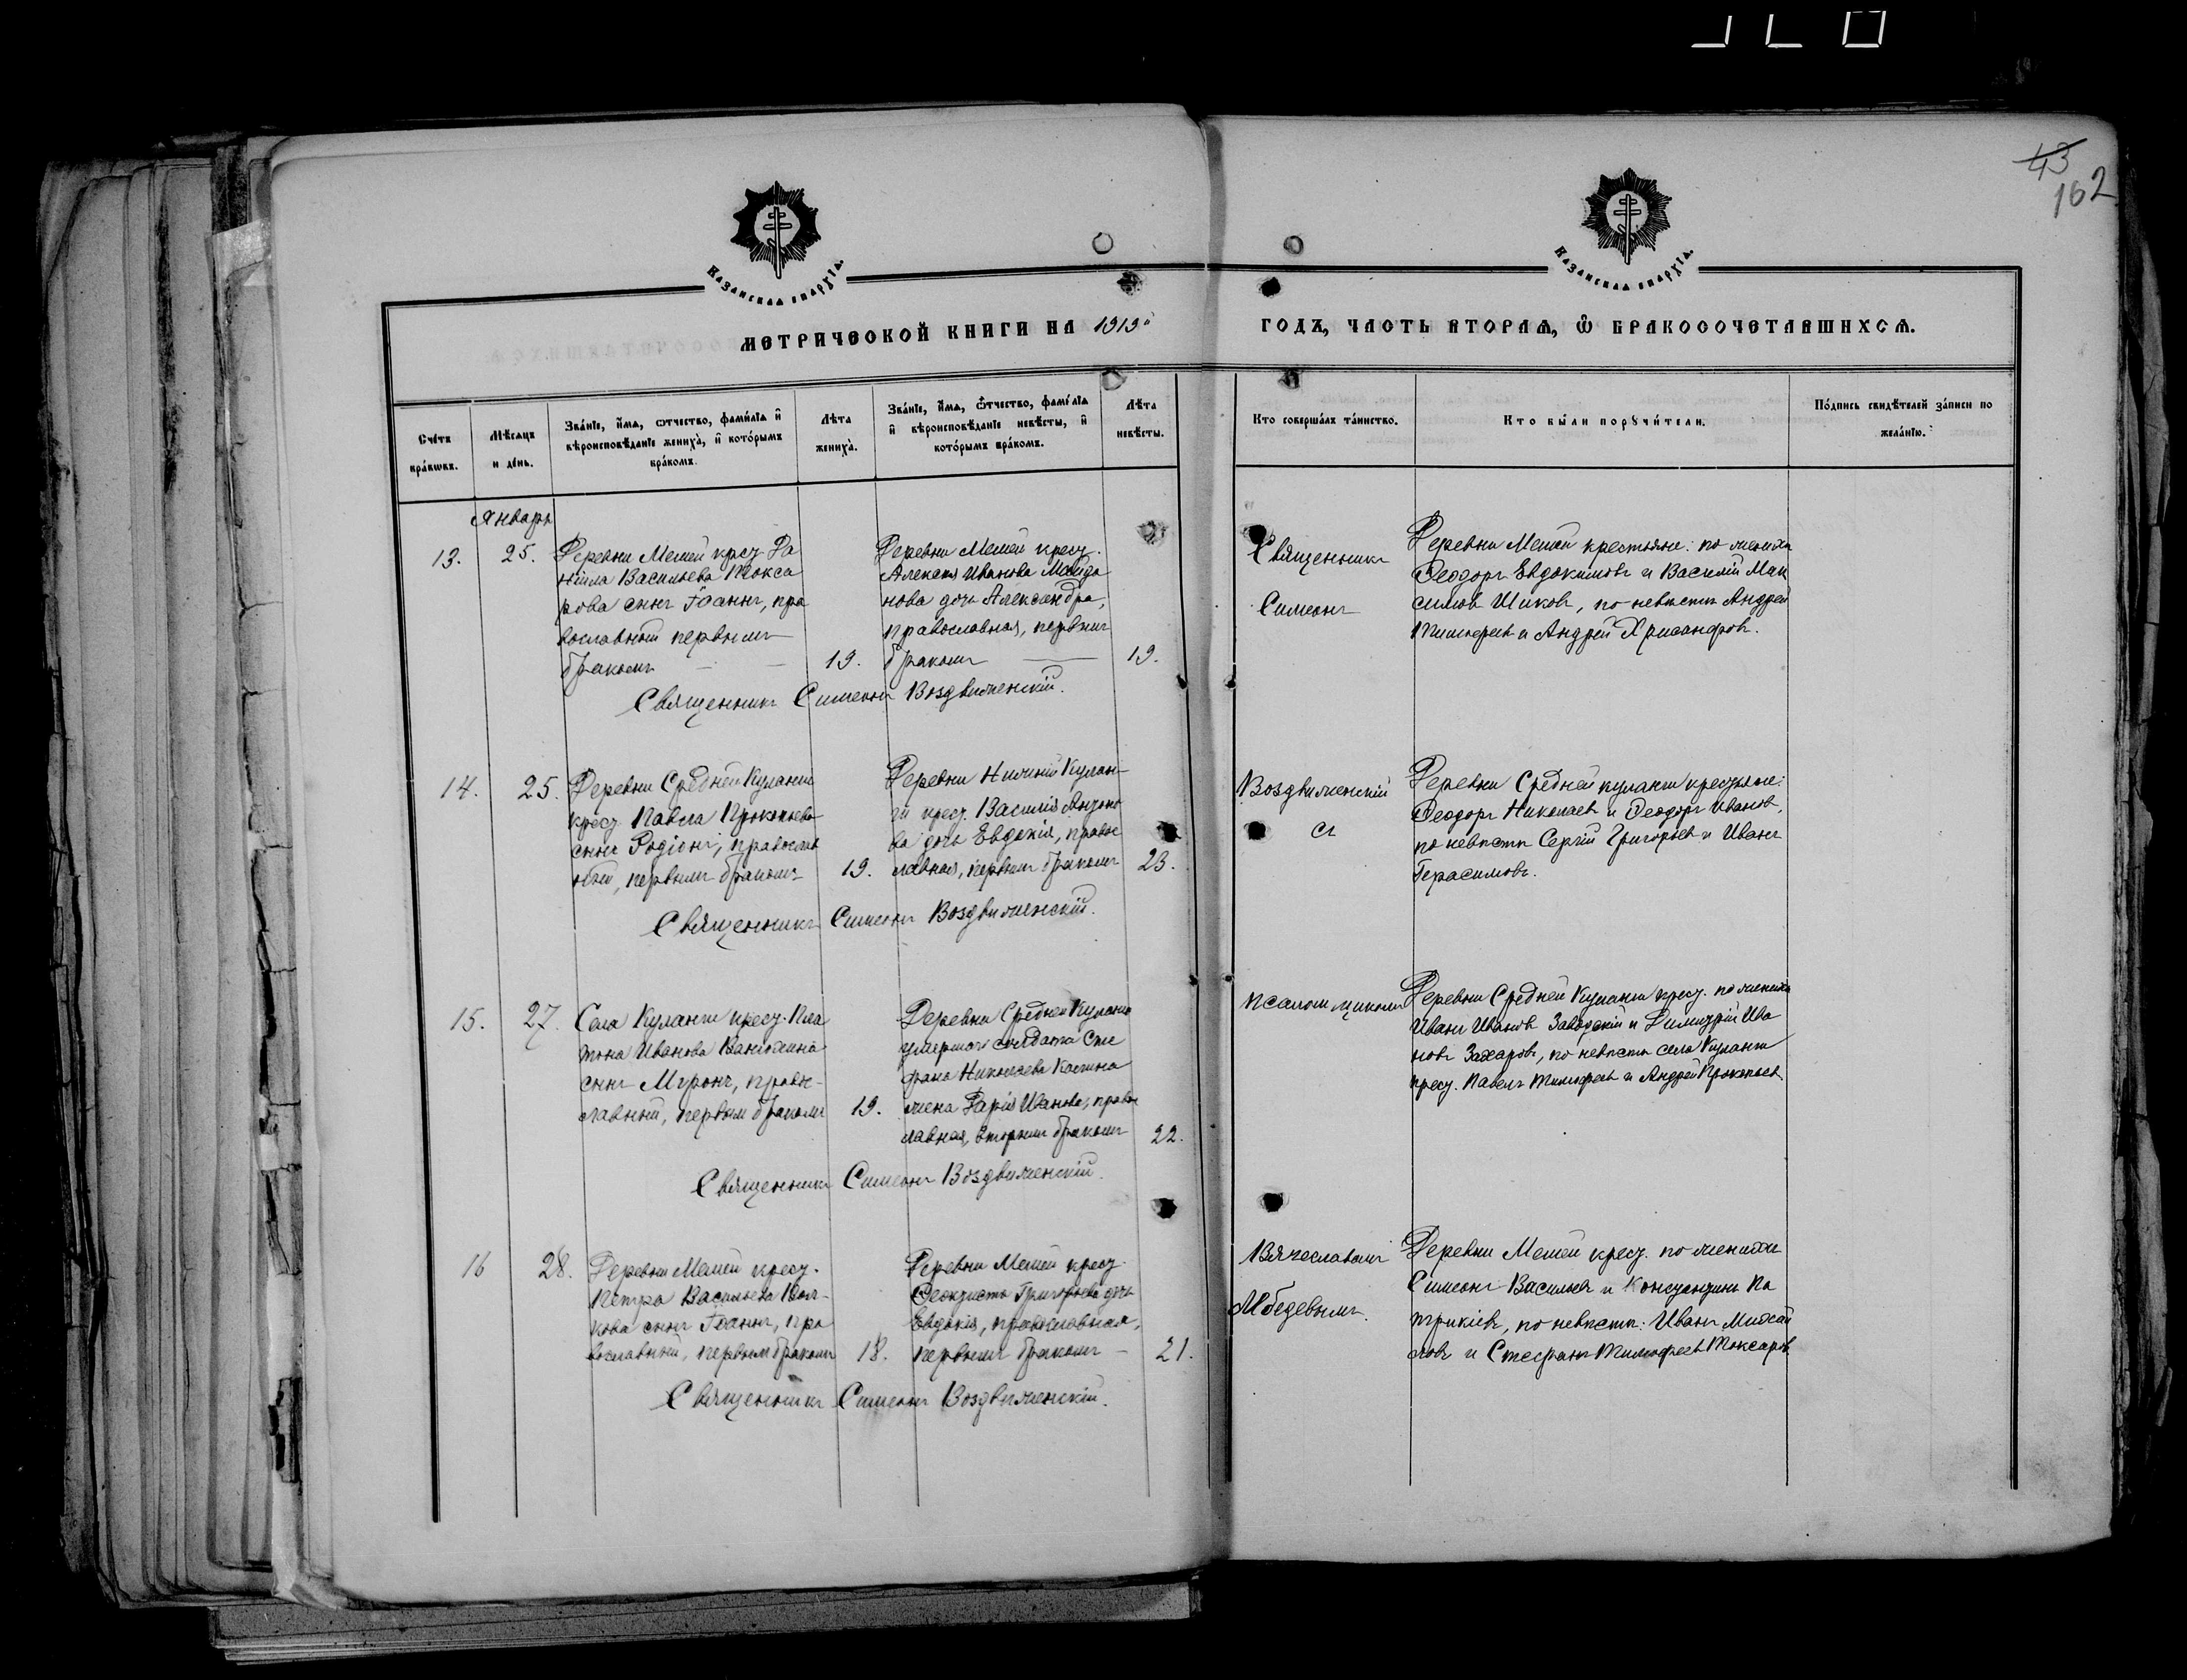 43
162
КАЗАНСКАЯ ЕПАРХІЯ.
КАЗАНСКАЯ ЕПАРХІЯ.
МЕТРИЧЕСКОЙ КНИГИ НА 1919й
ГОДЪ, ЧАСТЬ ВТОРАЯ, Ѿ БРАКОСОЧЕТАВШИХСЯ.
Счётъ бра́кωвъ.
Мѣ́сяцъ и де́нь.
Зва́ніе, и҆́мя, ѻтчество, фами́лія и҆ вѣроисповѣ́даніе жениха̀, и҆ кото́рымъ бра́комъ.
Лѣ́та жениха̀.
Зва́ніе, и҆́мя, ѻ҆́тчество, фами́лія и҆ вѣроисповѣ́даніе невѣ́сты, и҆ кото́рымъ бра́комъ.
Лѣ́та невѣ́сты.
Кто соверша́лъ та́инство.
Кто бы́ли порꙋчи́тели.
По́дпись свидѣ́телей за́писи по жела́нію.
Январь
13.
25.
Деревни Мемей крест. Да
ніила Васильева Токса
рова сынъ Іоаннъ, пра
вославный первымъ
бракомъ
19.
Деревни Мемей крест.
Алексѣя Иванова
нова дочь Александра,
православная, первымъ
бракомъ
19.
Священникъ Симеонъ Воздвиженскій.
Священникъ
Симеонъ
Деревни Мемей крестьяне: по женихѣ
Ѳеодоръ Евдокимовъ и Василій Мак
симовъ Шиковъ, по невѣстѣ Андрей
Тимоѳеевъ и Андрей Хрисанфовъ.
14.
25.
Деревни Средней Куланги
крест. Павла Прокопьева
сынъ Родіонъ, православ
ный, первымъ бракомъ
19.
Деревни Нижней Кулан-
ги крест. Василія Антоно
ва дочь Евдокія, правос
лавная, первымъ бракомъ
23.
Священникъ Симеонъ Воздвиженскій.
Воздвиженскій
съ
Деревни Средней Куланги крестьяне:
Ѳеодоръ Николаевъ и Ѳеодоръ Ивановъ,
по невѣстѣ Сергій Григорьевъ и Иванъ
Герасимовъ.
15.
27.
Села Куланги крест. Пла
тона Иванова Ванюхина
сынъ Миронъ, правос-
лавный, первым бракомъ
19.
Деревни Средней Куланги
умершаго солдата Сте
фана Николаева
жена Дарія Иванова, правос
лавная, вторымъ бракомъ
22.
Священникъ Симеонъ Воздвиженскій.
псаломщикомъ
Деревни Средней Куланги крест. по женихѣ
Иванъ Ивановъ Заводскій и Димитрій Ива
новъ Захаровъ, по невѣстѣ села Куланги
крест. Павелъ Тимоѳеевъ и Андрей Прокопьевъ
16
28.
Деревни Мемей крест.
Петра Васильева Вол-
кова сынъ Іоаннъ, пра
вославный, первым бракомъ
18.
Деревни Мемей крест.
Ѳеоктиста Григорьева дочь
Евдокія, православная,
первымъ бракомъ
21.
Священникъ Симеонъ Воздвиженскій.
Вячеславомъ
Деревни Мемей крест. по женихѣ
Симеонъ Васильевъ и Константинъ Па
трикіевъ, по невѣстѣ: Иванъ Михай
ловъ и Стефанъ Тимоѳеевъ Токсаровъ